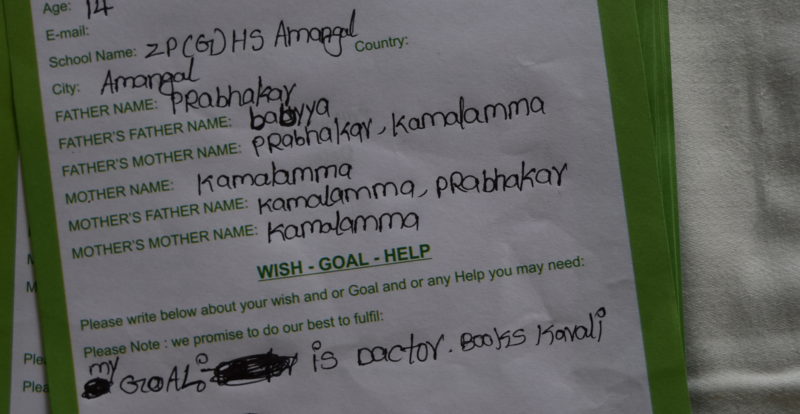 Age: 14
E-mail:
School Name: ZP(G)HS Amangal Country:
City: Amangal
FATHER NAME: PRabhakar
FATHER'S FATHER NAME: babyya
FATHER'S MOTHER NAME: PRabhakar, Kamalamma
MOTHER NAME: Kamalamma
MOTHER'S FATHER NAME: Kamalamma, PRabhakar
MOTHER'S MOTHER NAME: Kamalamma
WISH - GOAL - HELP
Please write below about your wish and or Goal and or any Help you may need:
Please Note : we promise to do our best to fulfil:
my GOAL: is Dactor. Books Kavali